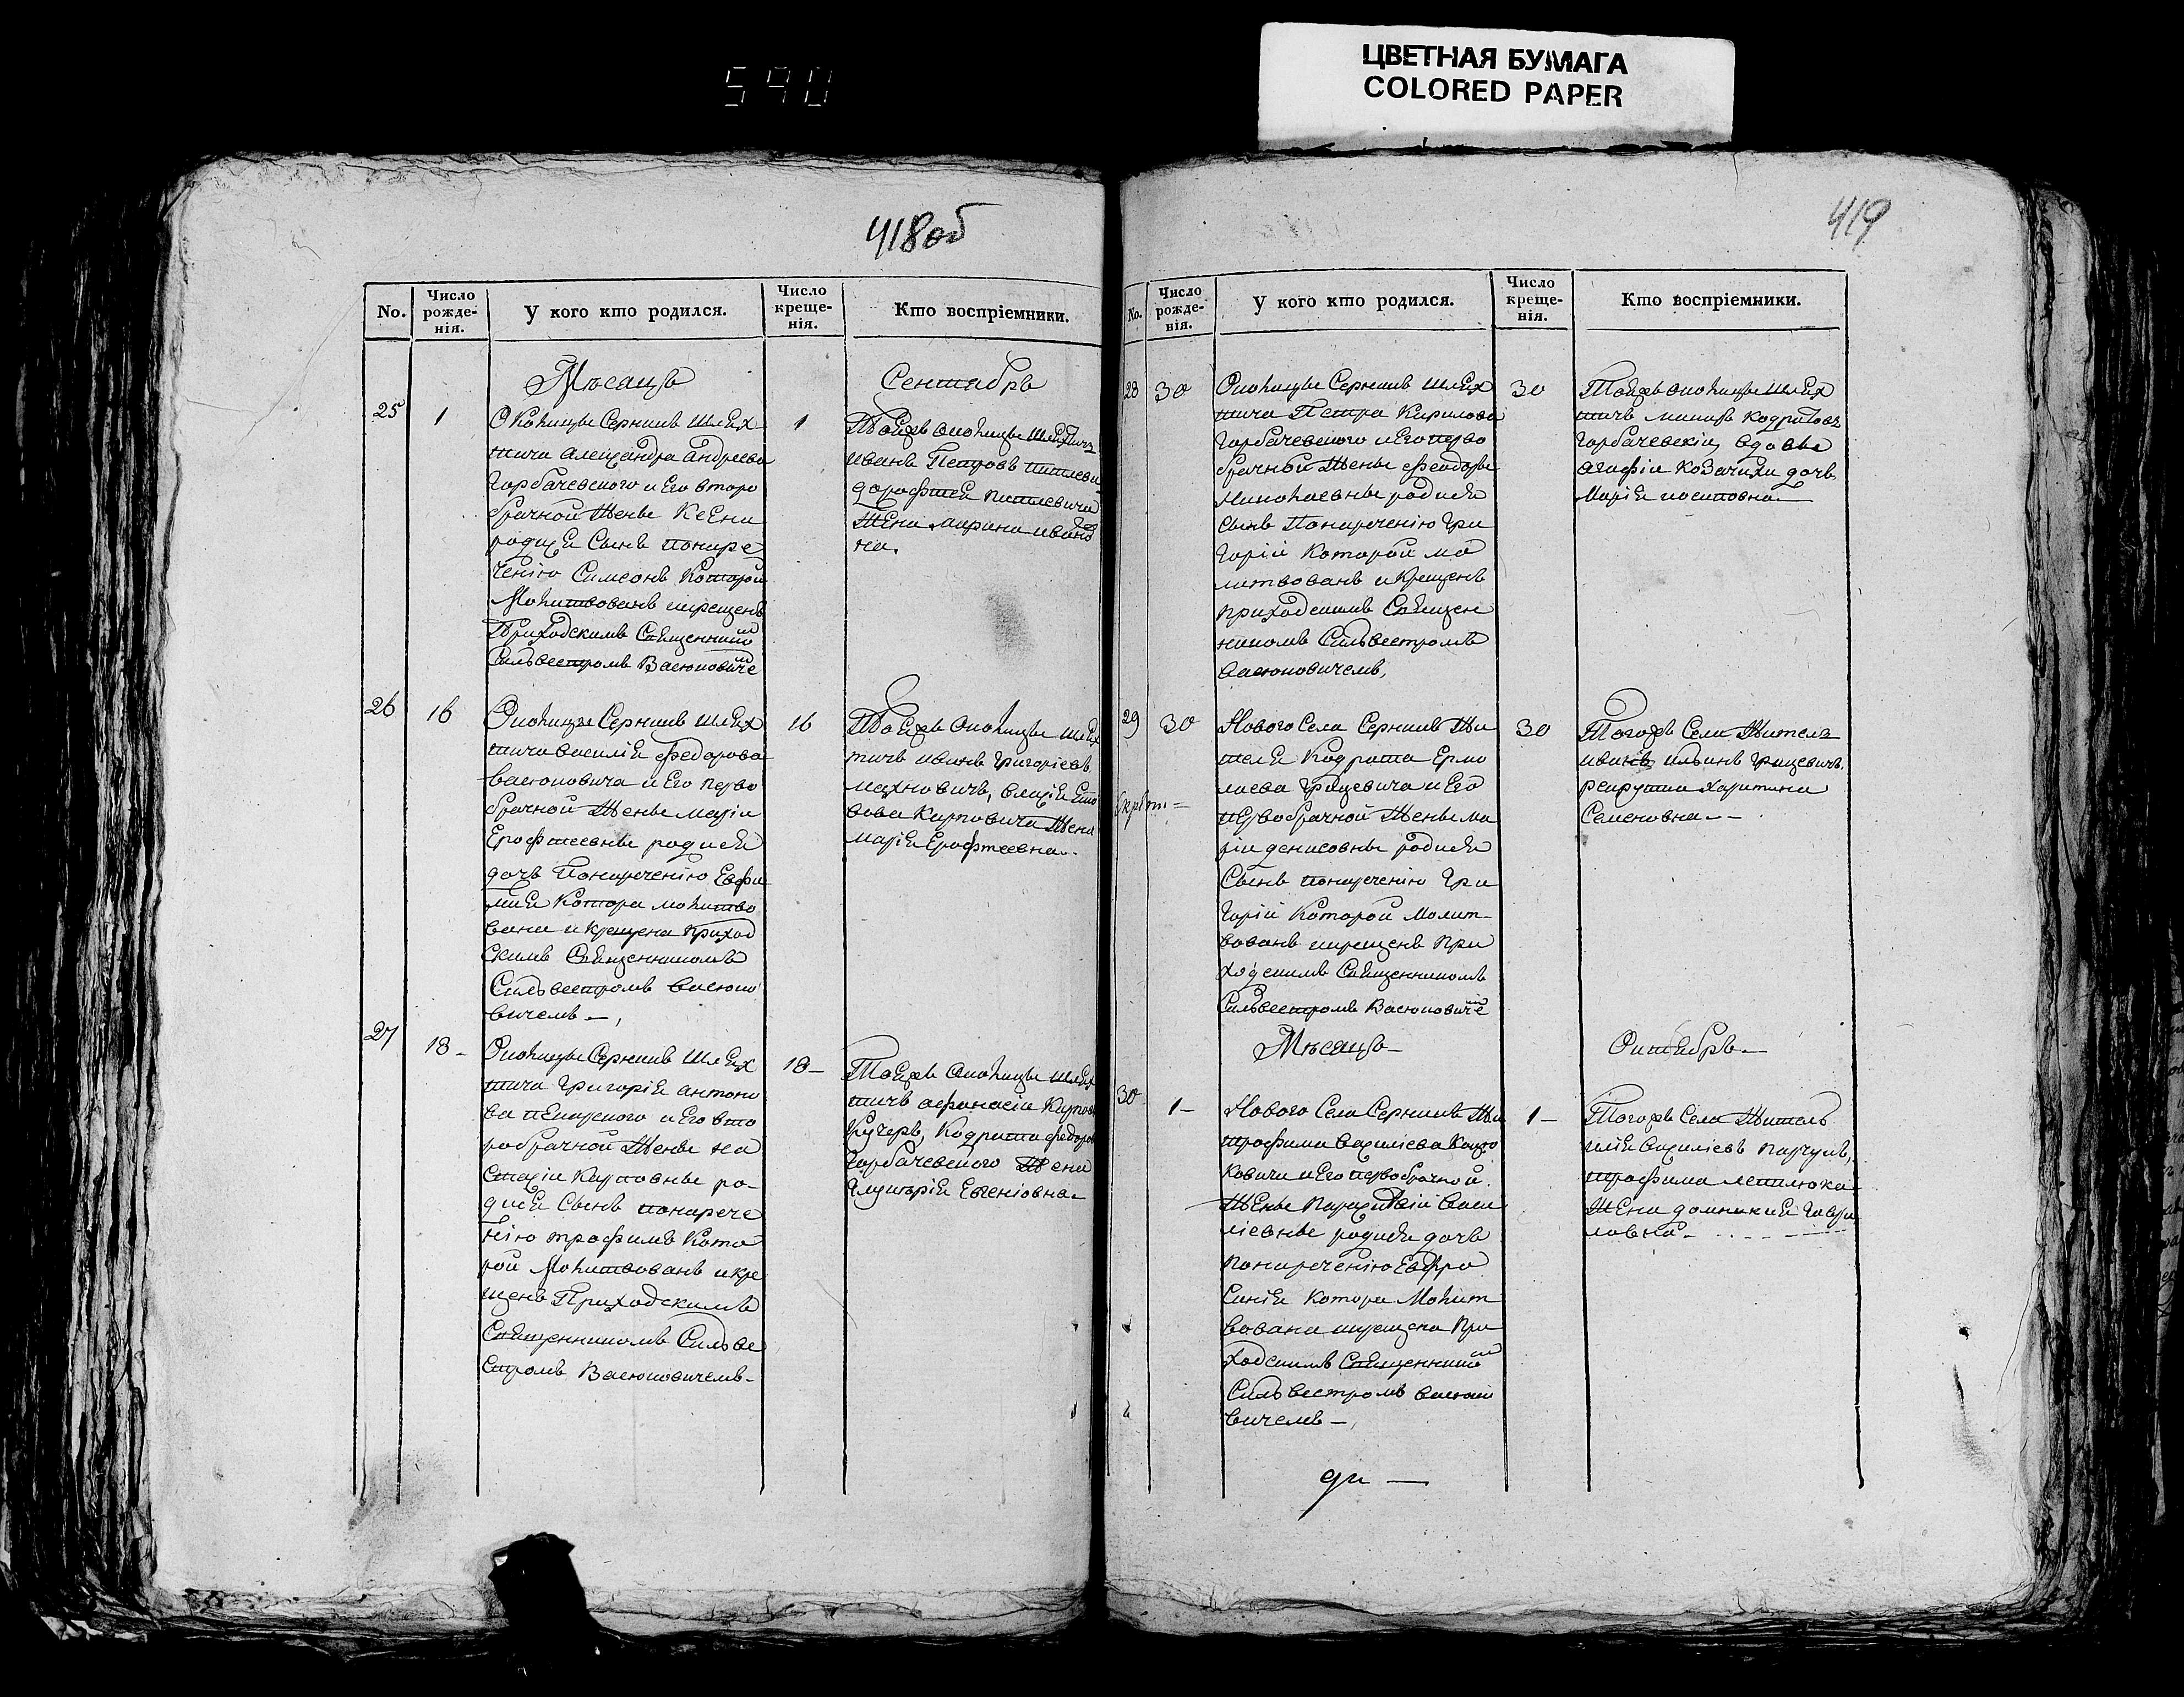 590
ЦВЕТНАЯ БУМАГА
COLORED PAPER
418об
No.
Число рожде-нія.
У кого кто родился.
Число креще-нія.
Кто воспріемники.
Мѣсяцъ
Сентябрь
25
1
Околицы Серникъ шлях
тича Александра Андреева
Горбачевского и Его второ
брачной жены Ксени
родися Сынъ понаре
ченію Симеонъ Которой
Молитвованъ икрещенъ
Приходскимъ Священником
Сильвестромъ Васюковичем
1
Тоейжъ околицы шляхтичъ
иванъ Петровъ
дорофтея
жена марина ивано
на.
26
16
Околицы Серникъ шлях
тича василія федорова
васюковича и Его перво
брачной жены маріи
Ерофтеевны родися
дочь Понареченію Евфи
мія Котора молитво
вана и крещена Приход
скимъ Священникомъ
Сильвестромъ васюко
вичемъ –,
16
Тоейжъ околицы шлях
тичъ иванъ григоріевъ
махновичъ,
Карповича жена
марія Ерофтеевна.
27
18 -
Околицы Серникъ шлях
тича григорія антоно
ва и Его вто
робрачной жены на
стасіи Карповны ро-
дися Сынъ понарече
нію трофимъ Кото
рой Молитвованъ икре
щенъ Приходскимъ
Священникомъ Сильве
стромъ Васюковичемъ-
18 -
Тоейжъ околицы шлях
тичъ афанасіи Карповъ
Кучеръ, Кодрата федоров
горбачевского жена
глукерія Евгеніовна
419
No.
Число рожде-нія.
У кого кто родился.
Число креще-нія.
Кто воспріемники.
28
30
Околицы Серникъ шлях
тича Петра Кирилова
горбачевского и Его перво
брачной жены феодоры
миколаевны родися
сынъ Понареченію гри
горій Которой мо
литвованъ икрещенъ
приходскимъ Священ
никомъ Сильвестромъ
васюковичемъ,
30
Тоейжъ околицы шлях
тичъ Кодратовъ
горбачевскій, вдовы
агафіи Козачихи дочь
Марія иосиповна
29
30
Нового Села Серникъ жи
теля Кодрата Ермо
лаева грицевича и Его
первобрачной жены ма
ріи денисовны родися
Сынъ понареченію гри
горій Которой Молит-
вованъ икрещенъ при
ходскимъ Священникомъ
Сильвестромъ Васюковичем
30
Тогожъ Села житель
иванъ ильинъ грицевичъ
рекрута харитина
Семеновна - -
Мѣсяцъ -
Октябрь -
30
1 -
Нового Села Серникъ жи
трофима василіева
ковича и Его первобрачной
жены Параскевіи васи
ліевны родися дочь
понареченію Евфро
синія Котора Молит
вована икрещена При
ходскимъ Священником
Сильвестромъ васюко
вичемъ -,
1 -
Тогожъ Села житель
илія василіевъ
трофима
жена домникія гаври
ловна -